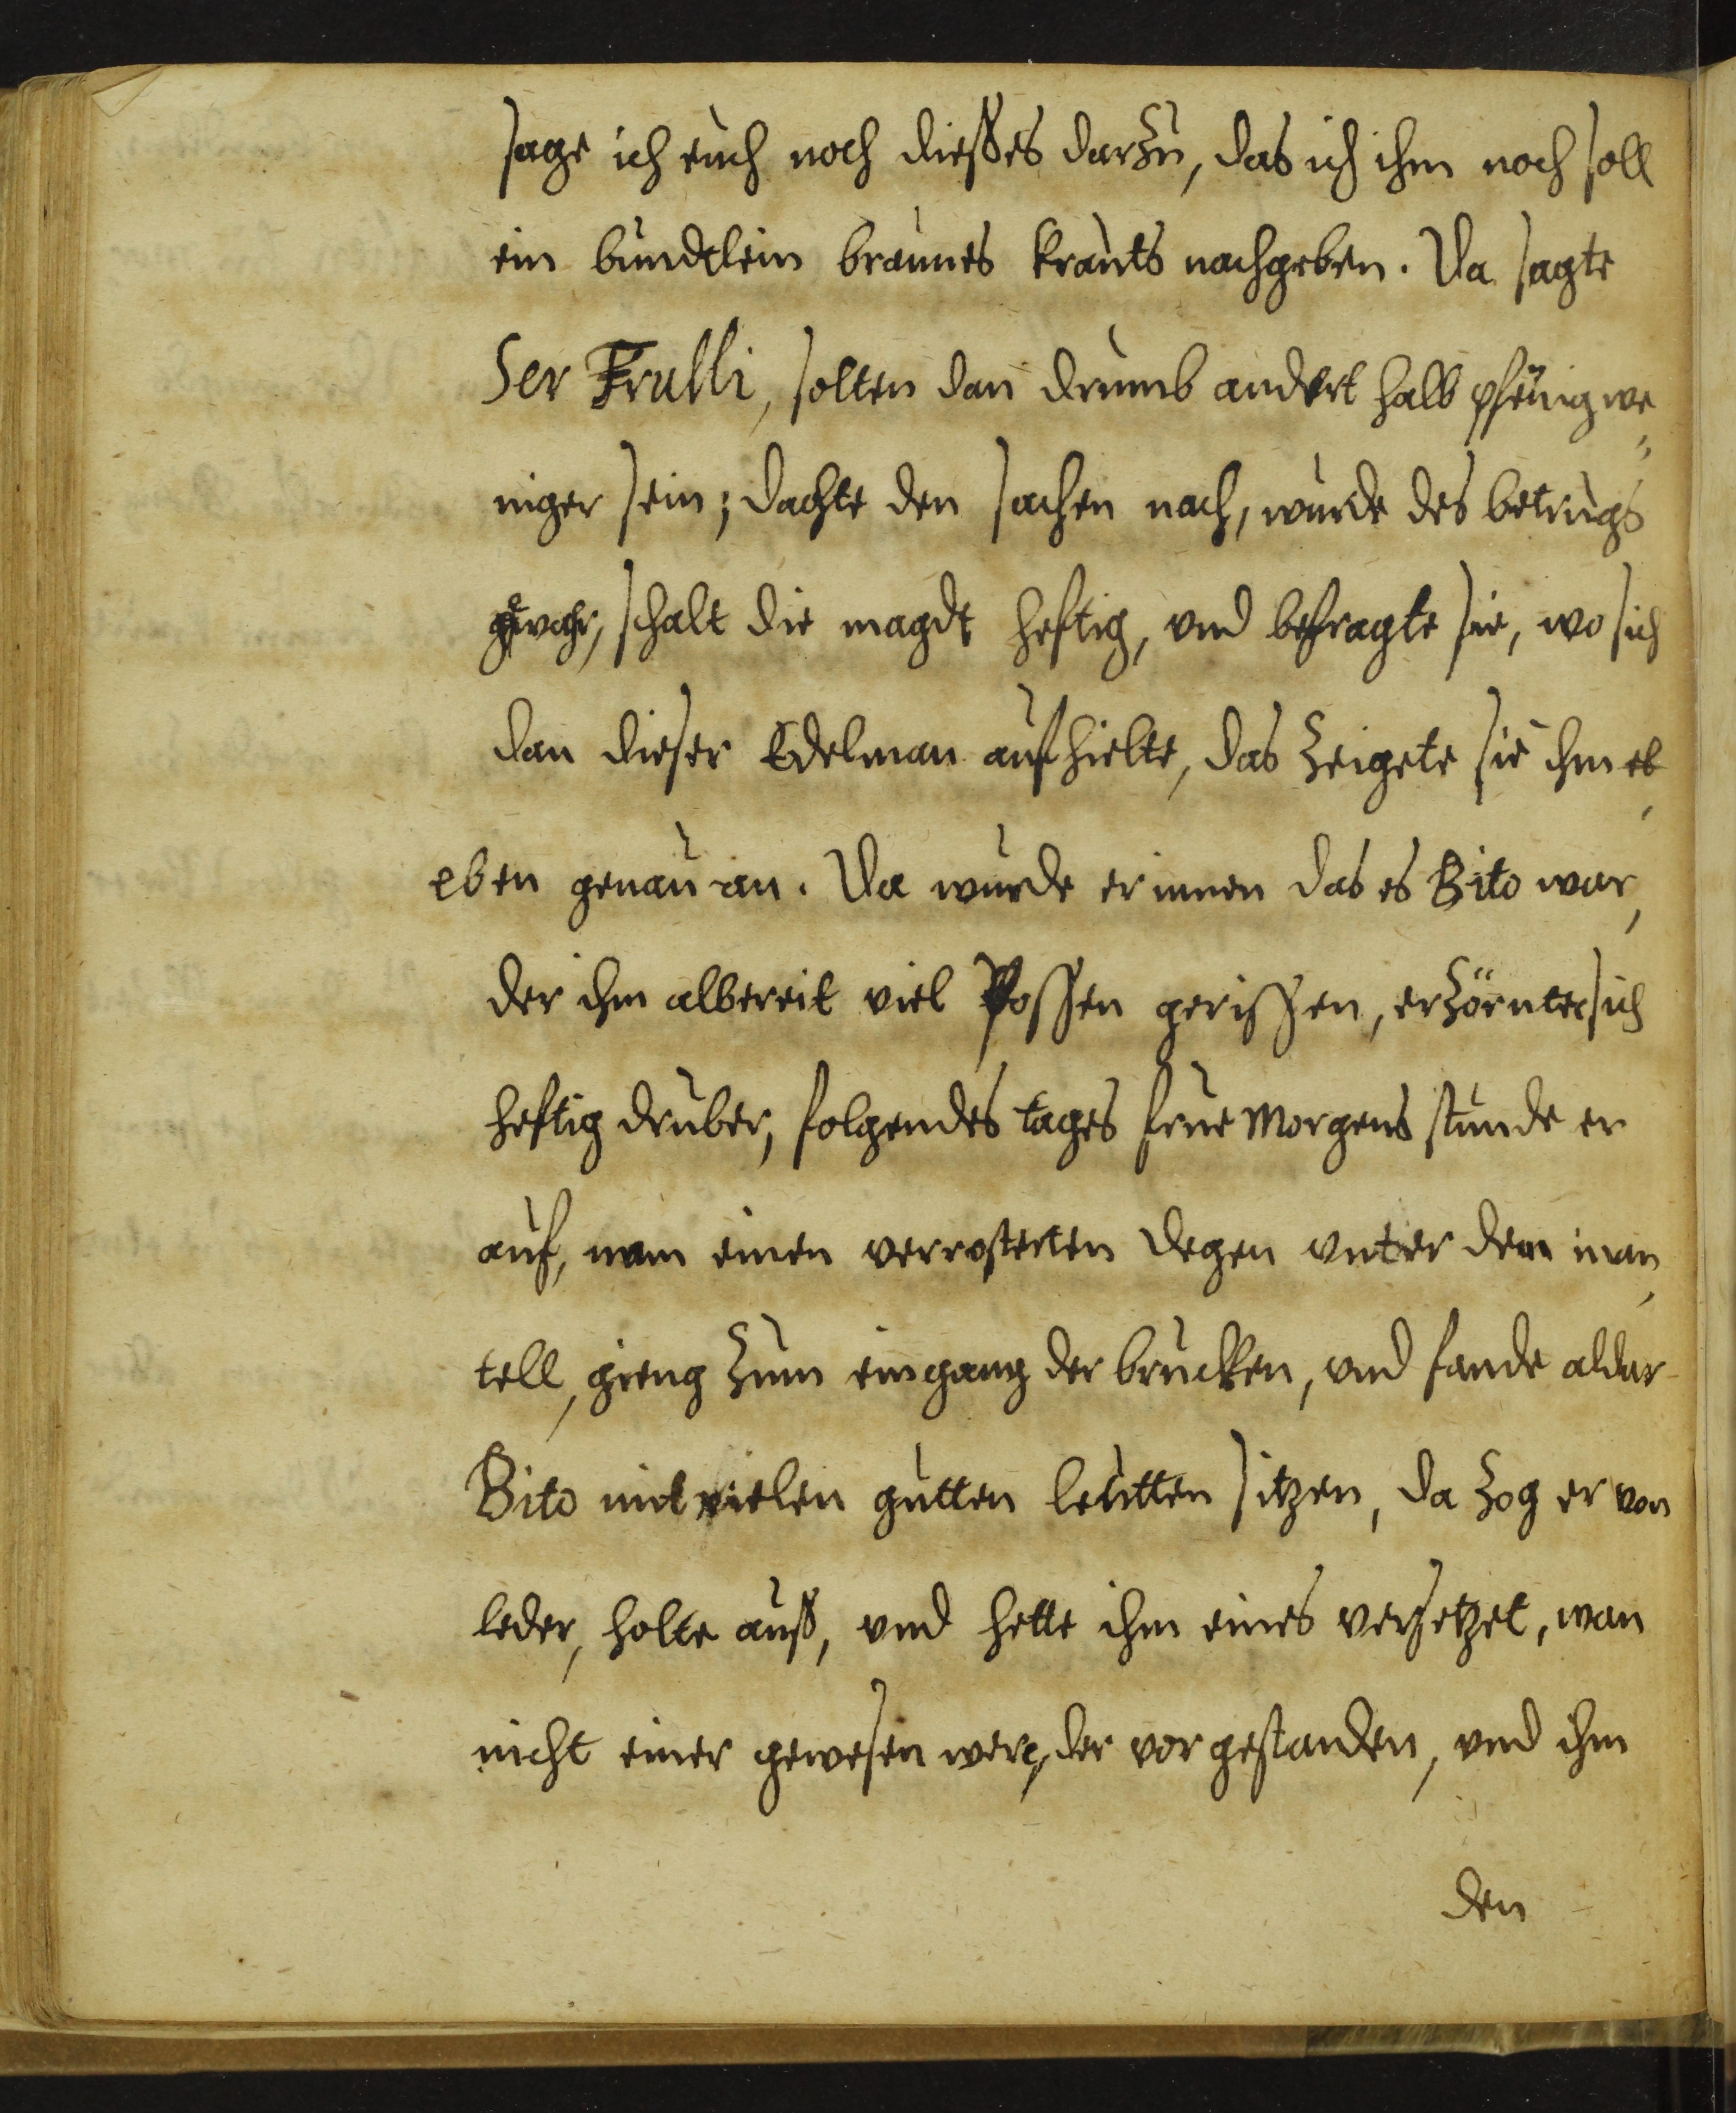 sage ich euch noch dießes darzu, das ich ihm noch soll
ein bundtlein braunes krauts nachgeben. Da sagte
Ser Frulli, solten dan drumb andert halb pfenig we„
niger sein; dachte den sachen nach, wurde des betrugs
gewahr, schalt die magdt heftig, vnd befragte sie, wo sich
dan dieser Edelman aufhielte, das zeigete sie ihm eb„
eben genau an. Da wurde er innen das es Bito war,
der ihm albereit viel Possen gerissen, erzörnte sich
heftig druber, folgendes tages frue Morgens stunde er
auf, nam einen verrosteten degen vnter den man„
tell, gieng zum eingang der brucken, vnd fande aldar
Bito mit vielen gutten leutten sitzen, da zog er von
leder, holte auß, vnd hette ihm eines versetzet, wan
nicht einer gewesen were, der vor gestanden, vnd ihm
den